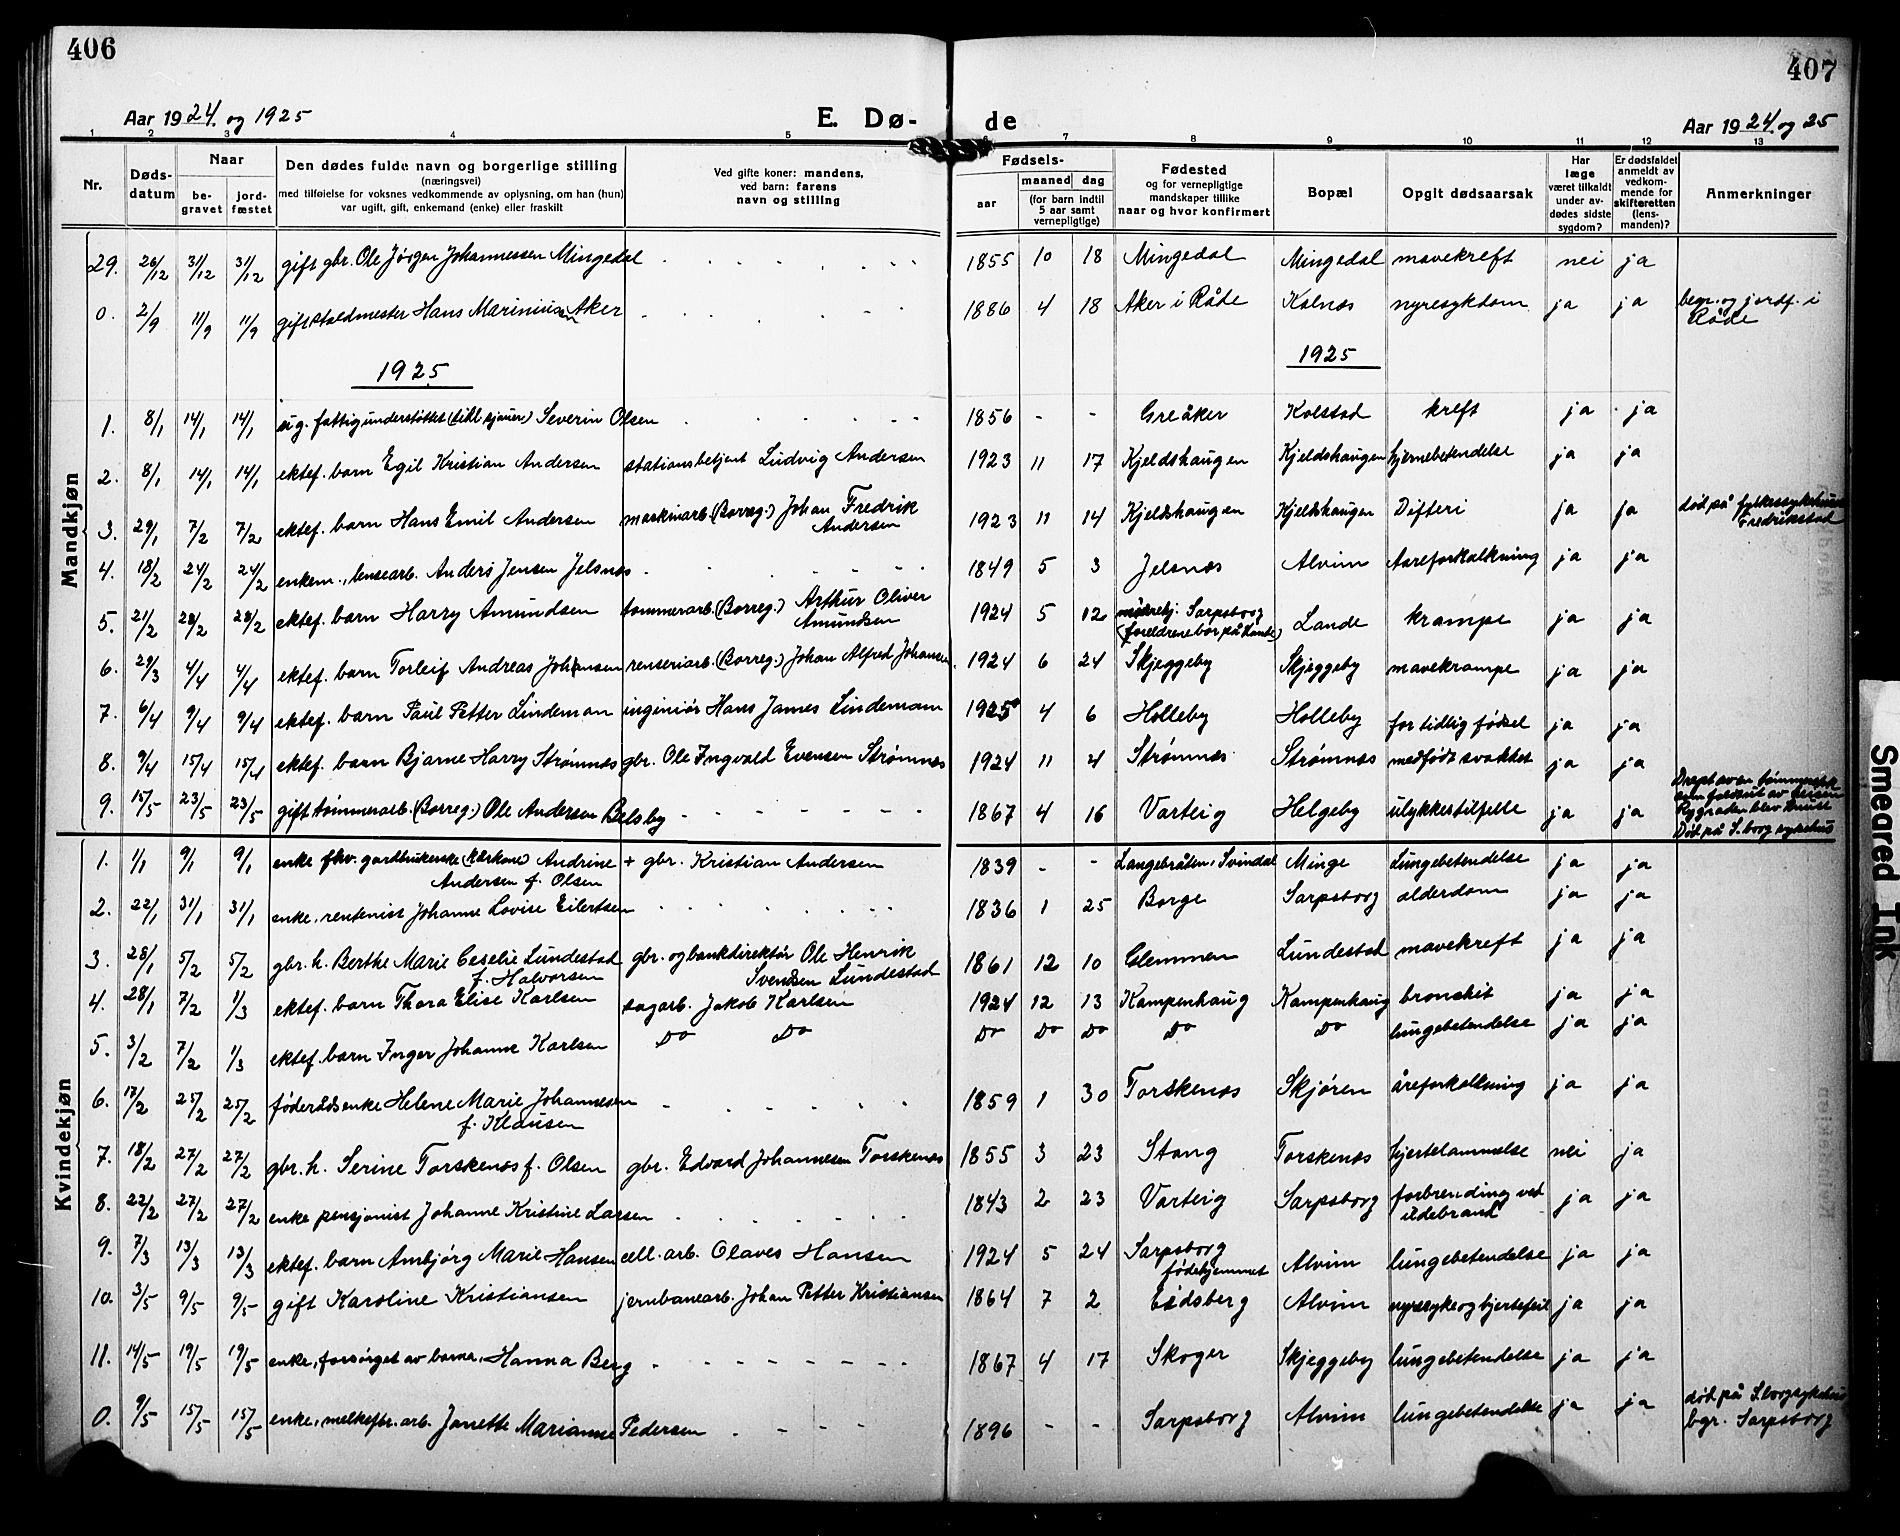 406
407
Aar 1924 og 1925
E. Dø-
de
Aar 1924 og 25
1 2 3 4 5 6 7 8 9 10 11 12 13
Nr.
Døds-
datum
Naar
be-
gravet
jord-
fæstet
Den dødes fulde navn og borgerlige stilling
(næringsvei)
med tilføielse for voksnes vedkommende av oplysning, om han (hun)
var ugift, gift, enkemand (enke) eller fraskilt
Ved gifte koner: mandens,
ved barn: farens
navn og stilling
Fødsels-
aar
maaned
dag
(for barn indtil
5 aar samt
vernepligtige)
Fødested
og for vernepligtige
mandskaper tillike
naar og hvor konfirmert
Bopæl
Opgit dødsaarsak
Har
læge
været tilkaldt
under av-
dødes sidste
sygdom?
Er dødsfaldet
anmeldt av
vedkom-
mende for
skifteretten
(lens-
manden)?
Anmerkninger
Mandkjøn
29. 26/12 31/12 31/12 gift gbr. Ole Jørgen Johannessen Mingedal 1855 10 18 Mingedal Mingedal mavekreft nei ja
0. 2/9 11/9 11/9 gift staldmester Hans Marinius Aker 1886 4 18 Aker i Råde Kalnæs nyresykdom ja ja begr. og jordf. i
Råde
1925
1925
1. 8/1 14/1 14/1 ug. fattigunderstøttet Severin Olsen 1856 - - Greåker Kolstad kreft ja ja
2. 8/1 14/1 14/1 ektef. barn Egil Kristian Andersen stationsbetjent Ludvig Andersen 1923 11 17 Kjeldshaugen Kjeldshaugen hjernebetendelse ja ja
3. 29/1 7/2 7/2 ektef. barn Hans Emil Andersen maskinarb. (Borreg.) Johan Fredrik
Andersen 1923 11 14 Kjeldshaugen Kjeldshaugen Difteri ja ja død på fylkessykehuset
Fredrikstad
4. 18/2 24/2 24/2 enkem., lensearb. Anders Jensen Jelsnæs 1849 5 3 Jelsnæs Alvim Aareforkalkning ja ja
5. 21/2 28/2 28/2 ektef. barn Harry Amundsen tømmerarb. (Borreg.) Arthur Oliver
Amundsen 1924 5 12 Sarpsborg
(foreldrene bor på Lande) Lande krampe ja ja
6. 29/3 4/4 4/4 ektef. barn Torleif Andreas Johansen renseriarb. (Borreg.) Johan Alfred Johansen 1924 6 24 Skjeggeby Skjeggeby mavekrampe ja ja
7. 6/4 9/4 9/4 ektef. barn Paul Petter Lindeman ingeniør Hans James Lindeman 1925 4 6 Holleby Holleby for tidlig fødsel ja ja
8. 9/4 15/4 15/4 ektef. barn Bjarne Harry Strømnæs gbr. Ole Ingvald Evensen Strømnæs 1924 11 4 Strømnæs Strømnæs medfødt svakhet ja ja
9. 15/5 23/5 23/5 gift tømmerarb. (Borreg.) Ole Andersen Belsby 1867 4 16 Varteig Helgeby ulykkestilfelle ja ja Drept av en tømmerstok
Ryggraden blev knust
Død på S.borg sykehus
Kvindekjøn
1. 1/1 9/1 9/1 enke fhv. gardbrukerske (kårkone) Andrine
Andersen f. Olsen + gbr. Kristian Andersen 1839 - - Langebråten, Svindal Minge Lungebetendelse ja ja
2. 22/1 31/1 31/1 enke, rentenist Johanne Lovise Eilertsen 1836 1 25 Borge Sarpsborg alderdom ja ja
3. 28/1 5/2 5/2 gbr. h. Berthe Marie Ceselie Lundestad
f. Halvorsen gbr. og bankdirektør Ole Henrik
Svendsen Lundestad 1861 12 10 Glemmen Lundestad mavekreft ja ja
4. 28/1 7/2 1/3 ektef. barn Thora Elise Karlsen sagarb. Jakob Karlsen 1924 12 13 Kampenhaug Kampenhaug bronchit ja ja
5. 3/2 7/2 1/3 ektef. barn Inger Johanne Karlsen Do Do Do Do Do Do Do lungebetendelse ja ja
6. 17/2 25/2 25/2 føderådsenke Helene Marie Johannesen
f. Klausen 1859 1 30 Torskenæs Skjøren åreforkalkning ja ja
7. 18/2 27/2 27/2 gbr. h. Serine Torskenæs f. Olsen gbr. Edvard Johannesen Torskenæs 1855 3 23 Stang Torskenæs hjertelammelse nei ja
8. 22/2 27/2 27/2 enke pensjonist Johanne Kristine Larsen 1843 2 23 Varteig Sarpsborg forbrending ved
ildebrand ja ja
9. 7/3 13/3 13/3 ektef. barn Ambjørg Marie Hansen cell. arb. Olaves Hansen 1924 5 24 Sarpsborg
fødehjemmet Alvim lungebetendelse ja ja
10. 3/5 9/5 9/5 gift Karoline Kristiansen jernbanearb. Johan Petter Kristiansen 1864 7 2 Eidsberg Alvim nyresyke og hjertefeil ja ja
11. 14/5 19/5 19/5 enke, forsørget av barna, Hanna Berg 1867 4 17 Skoger Skjeggeby lungebetendelse ja ja
0. 9/5 15/5 15/5 enke, melkefbr. arb. Janette Marianne Pedersen 1896 - - Sarpsborg Alvim lungebetendelse ja ja død på S.borg sykehus
bgr. Sarpsborg
Smeared Ink